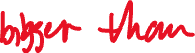 bigger than